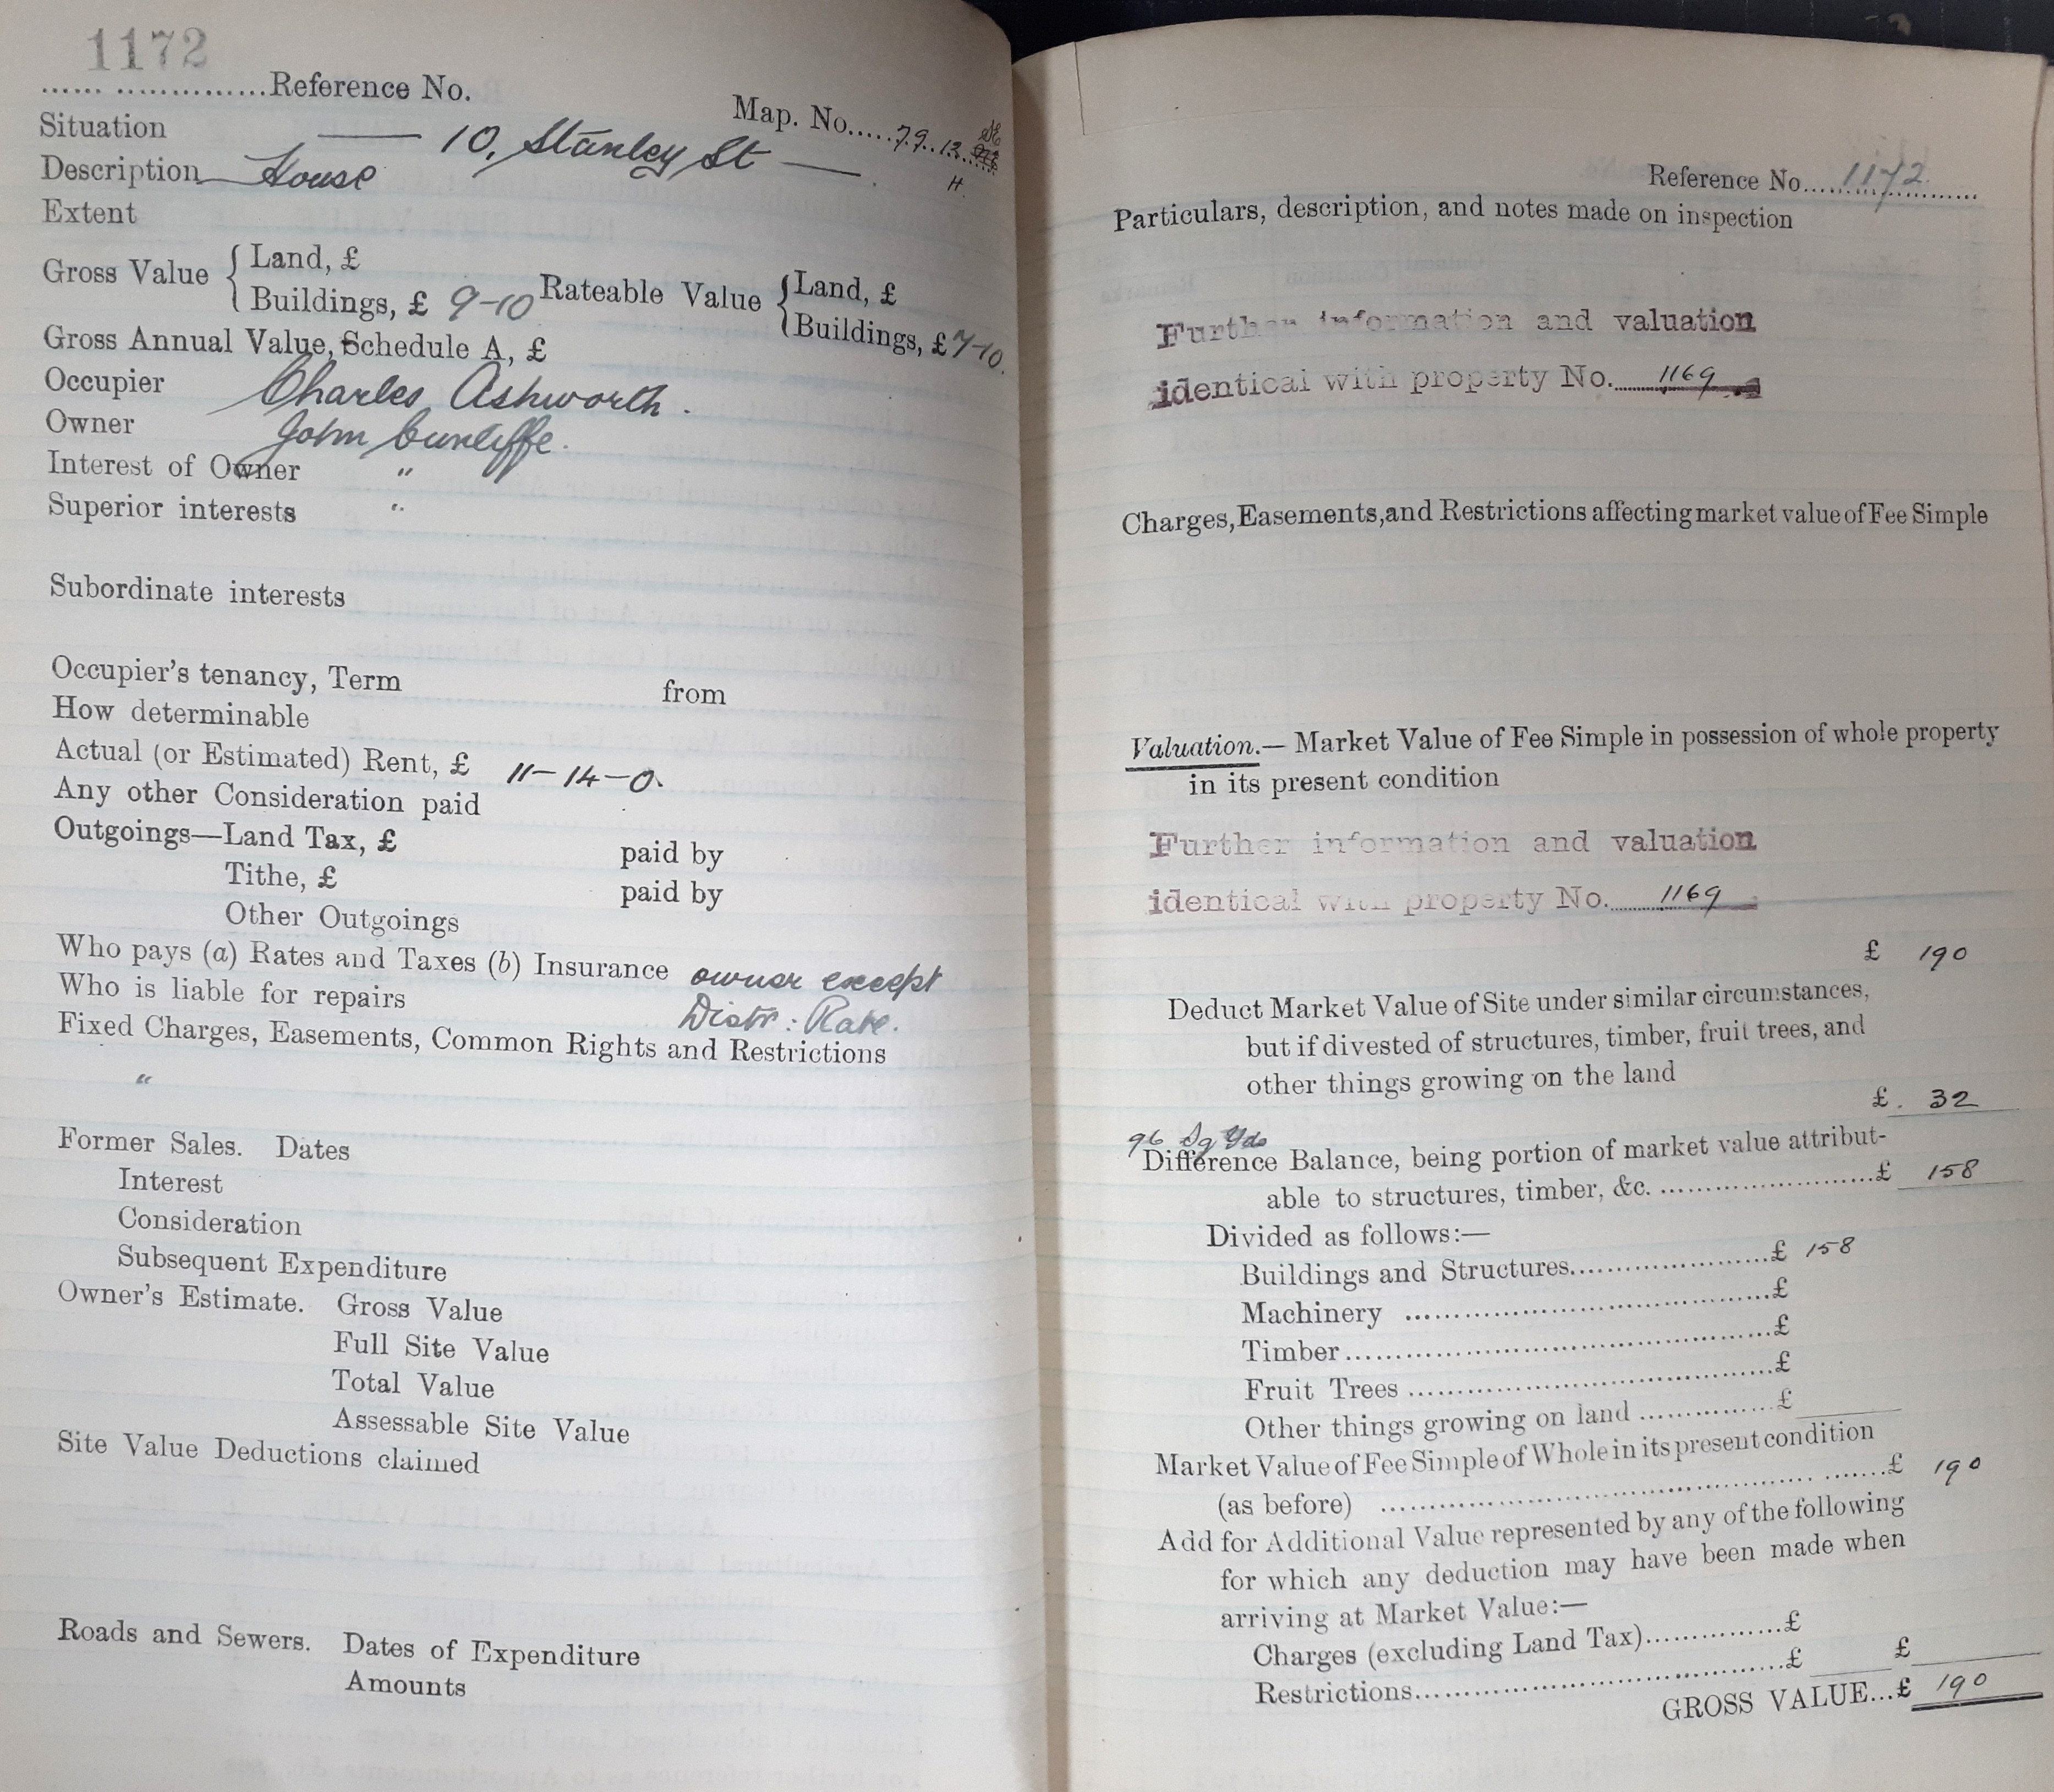 1172
...... ...............Reference No.
Map. No.....79..13....
H.
Situation —— 10, Stanley St ——.
Description House
Extent
Gross Value { Land, £
Buildings, £ 9-10
Rateable Value { Land, £
Buildings, £ 7-10.
Gross Annual Value, Schedule A, £
Occupier Charles Ashworth.
Owner John Cunliffe.
Interest of Owner "
Superior interests "
Subordinate interests
Occupier's tenancy, Term from
How determinable
Actual (or Estimated) Rent, £ 11-14-0.
Any other Consideration paid
Outgoings—Land Tax, £ paid by
Tithe, £ paid by
Other Outgoings
Who pays (a) Rates and Taxes (b) Insurance owner except
Who is liable for repairs Distr: Rate.
Fixed Charges, Easements, Common Rights and Restrictions
"
Former Sales. Dates
Interest
Consideration
Subsequent Expenditure
Owner's Estimate. Gross Value
Full Site Value
Total Value
Assessable Site Value
Site Value Deductions claimed
Roads and Sewers. Dates of Expenditure
Amounts
Reference No....1172........
Particulars, description, and notes made on inspection
Further information and valuation
identical with property No. 1169
Charges, Easements, and Restrictions affecting market value of Fee Simple
Valuation.— Market Value of Fee Simple in possession of whole property
in its present condition
Further information and valuation
identical with property No. 1169
£ 190
Deduct Market Value of Site under similar circumstances,
but if divested of structures, timber, fruit trees, and
other things growing on the land
£. 32
96 Sq Yds
Difference Balance, being portion of market value attribut-
able to structures, timber, &c. ........................£ 158
Divided as follows:—
Buildings and Structures......................£ 158
Machinery ........................................£
Timber.............................................£
Fruit Trees .......................................£
Other things growing on land ................£
Market Value of Fee Simple of Whole in its present condition
(as before) ..................................................£ 190
Add for Additional Value represented by any of the following
for which any deduction may have been made when
arriving at Market Value:—
Charges (excluding Land Tax)...............£
Restrictions.......................................£ £
GROSS VALUE...£ 190